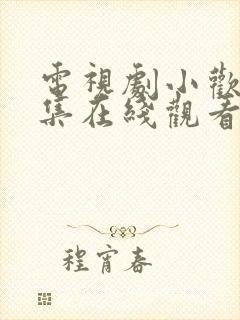 電視劇小歡
集在綫觀看
程宵春